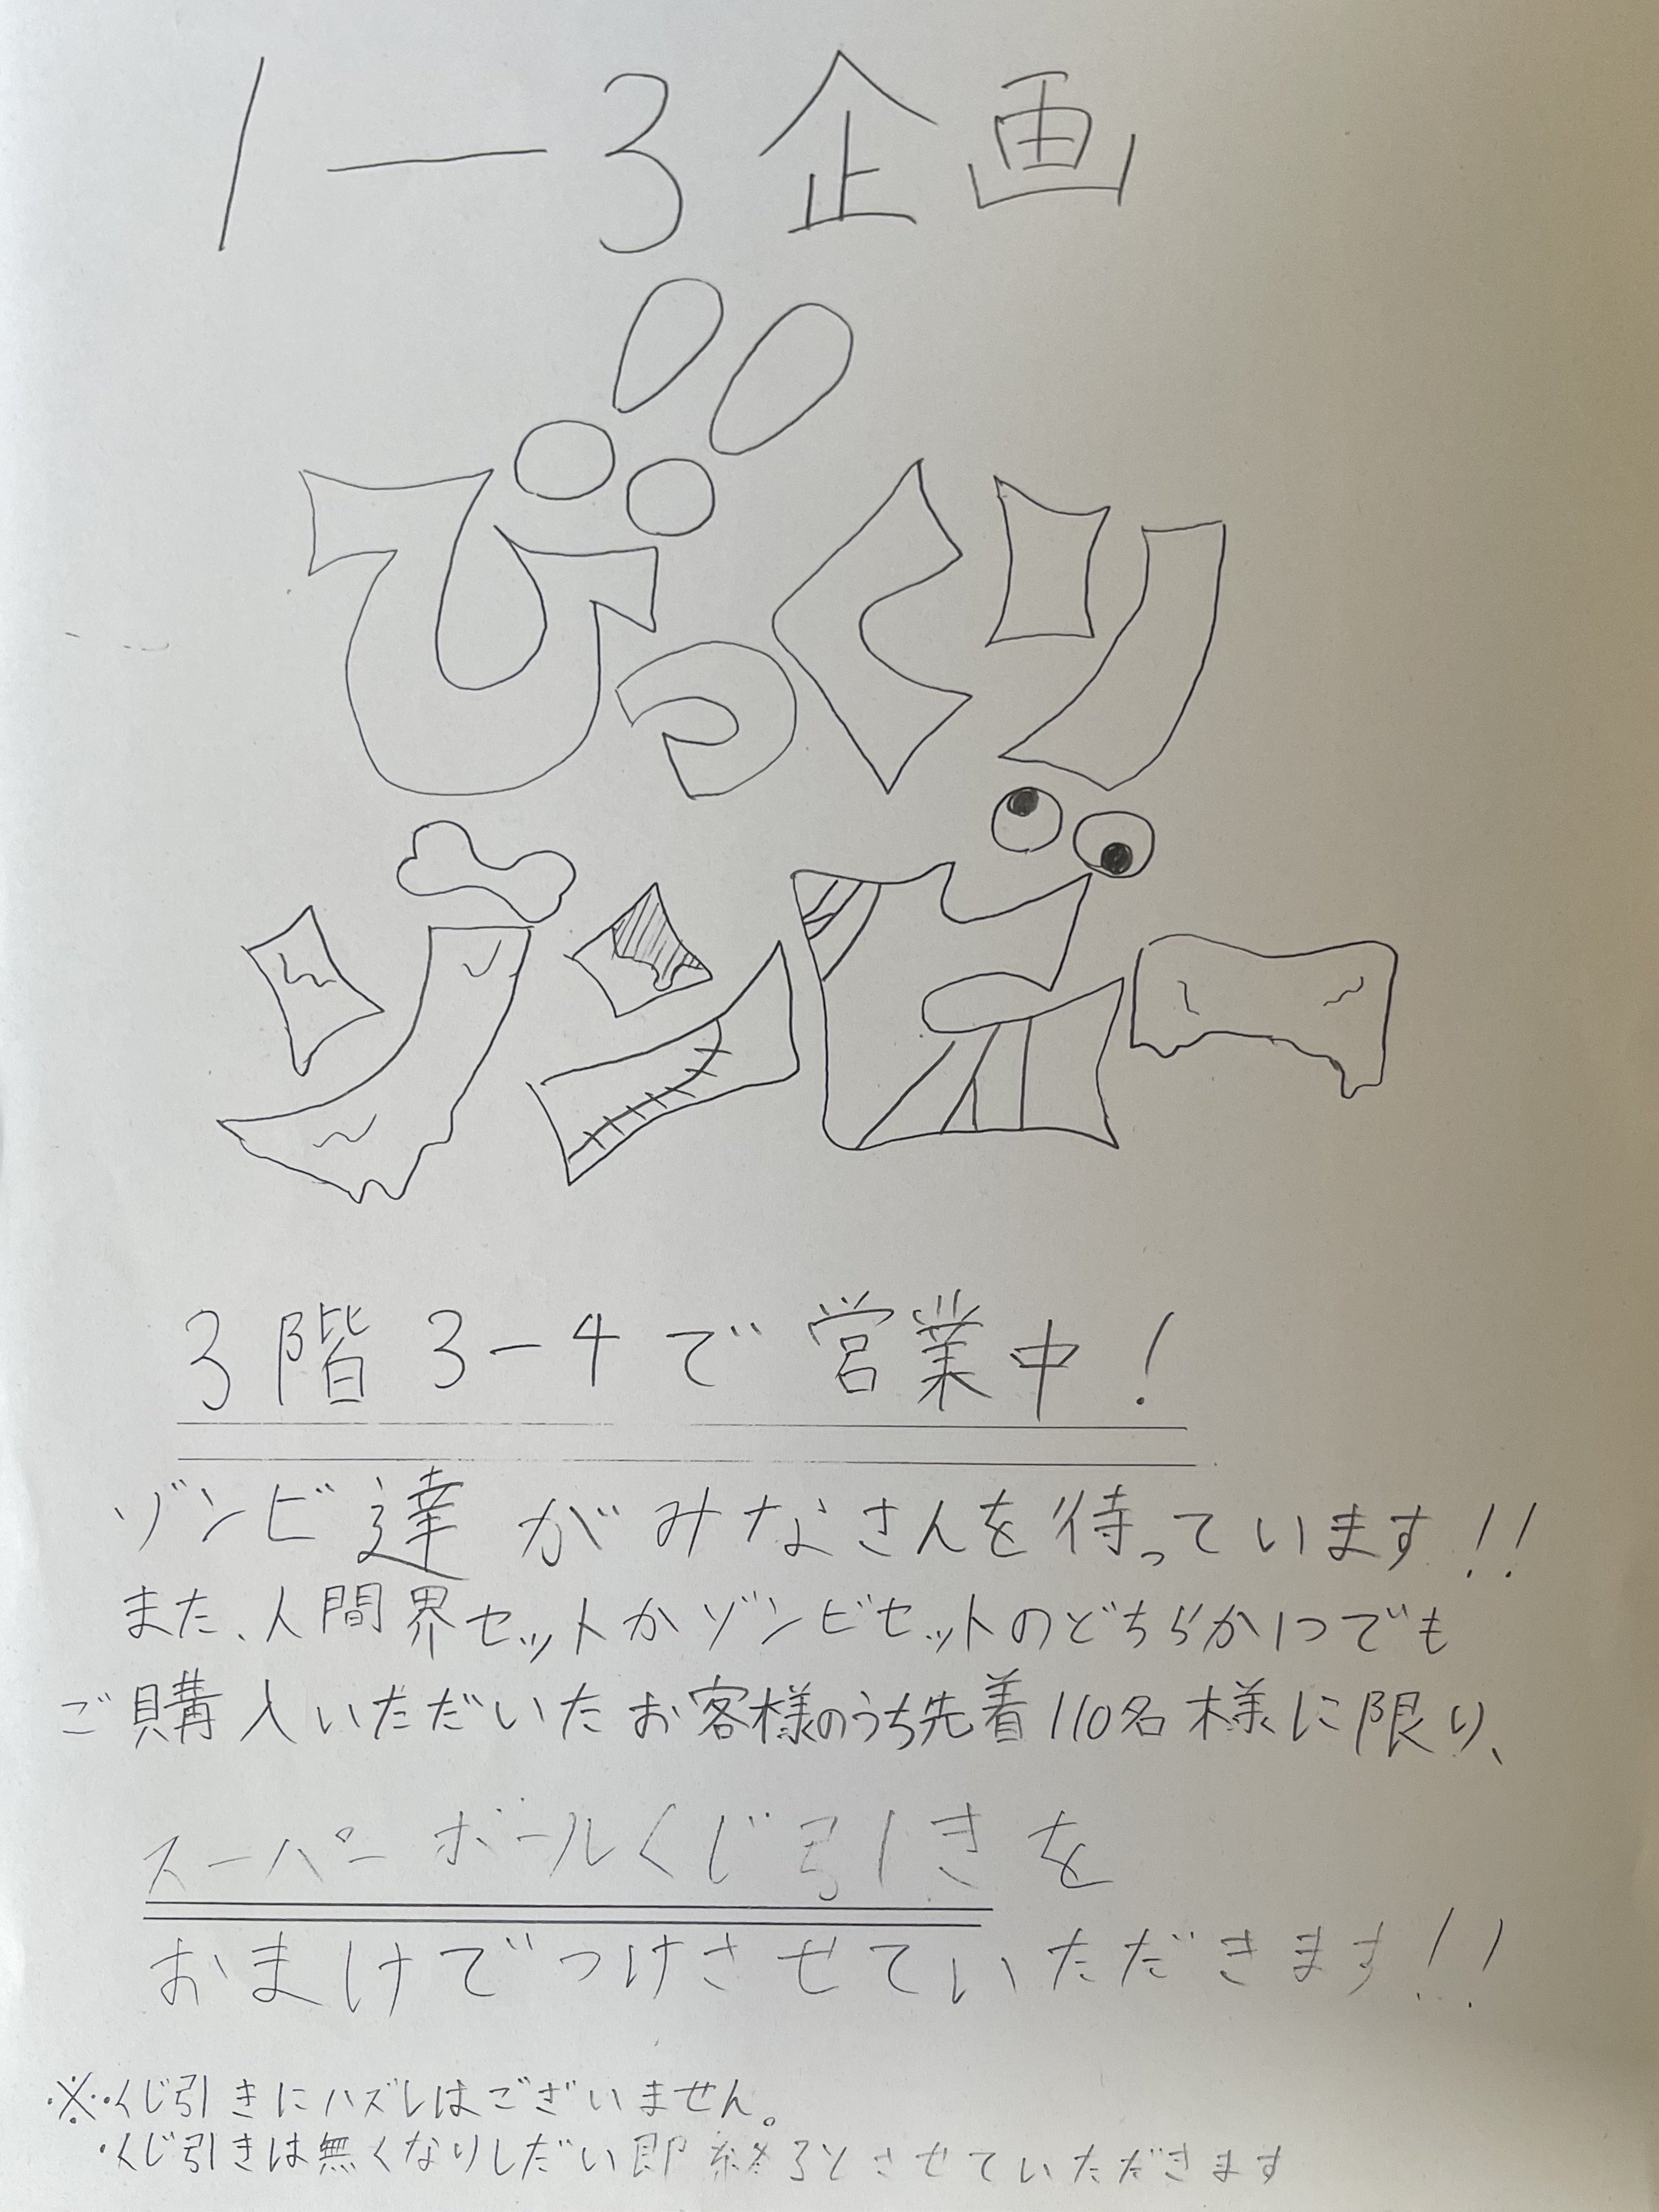 1－3 企画
びっくり
ゾンビー
3階 3-4で営業中!
ゾンビ達がみなさんを待っています!!
また、人間界セットかゾンビセットのどちらか1つでも
ご購入いただいたお客様のうち先着110名様に限り、
スーパーボールくじ引きを
おまけでつけさせていただきます!!
※・くじ引きにハズレはございません。
・くじ引きは無くなりしだい即終了とさせていただきます